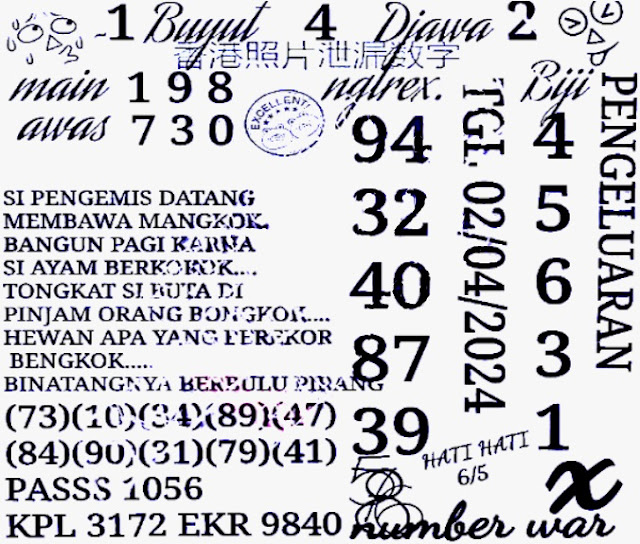 1 Buyut 4 Djawa 2
香港照片泄漏数字
main 1 9 8 nglrex. Biji
awas 7 3 0
EXCELLENT!
94 4
32 5
40 6
87 3
39 1
TGL 02/04/2024
PENGELUARAN
SI PENGEMIS DATANG
MEMBAWA MANGKOK.
BANGUN PAGI KARNA
SI AYAM BERKOKOK....
TONGKAT SI BUTA DI
PINJAM ORANG BONGKOK....
HEWAN APA YANG BEREKOR
BENGKOK.....
BINATANGNYA BERBULU PIRANG
(73)(10)(34)(89)(47)
(84)(90)(31)(79)(41)
HATI HATI
6/5
PASSS 1056
KPL 3172 EKR 9840
x
number war